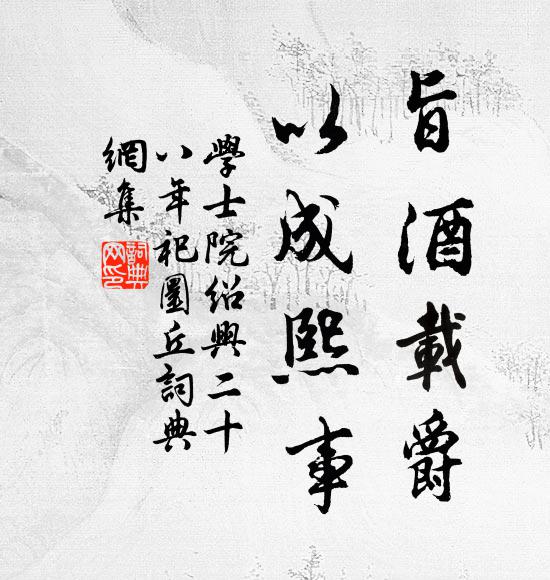 旨酒載爵
以成熙事
學士院紹興二十
八年祀圜丘詞典
網集
詞典
网印